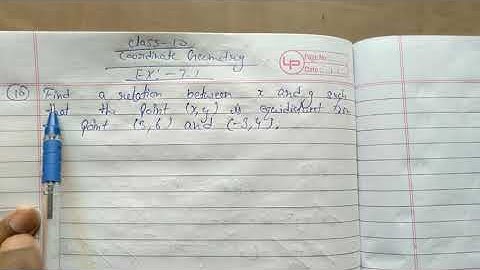 Class-10
Coordinate Geometry
EX:- 7.1
Page No.
Date
(10) Find a relation between x and y such
that the point (x, y) is equidistant from
point (3, 6) and (-3, 4).